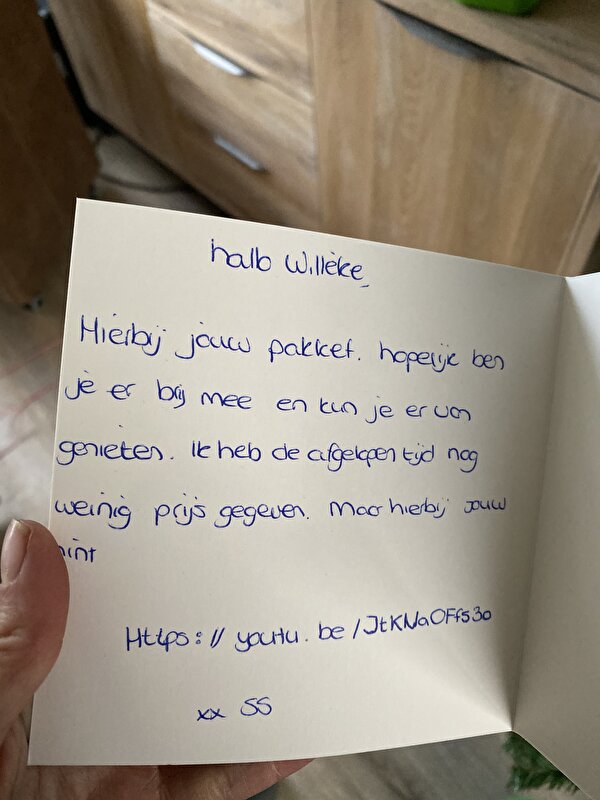 hallo Willeke,
Hierbij jouw pakket. hopelijk ben
je er blij mee en kun je er van
genieten. Ik heb de afgelopen tijd nog
weinig prijs gegeven. Maar hierbij jouw
hint
Https://youtu.be/JtKNaOFfs3o
xx SS